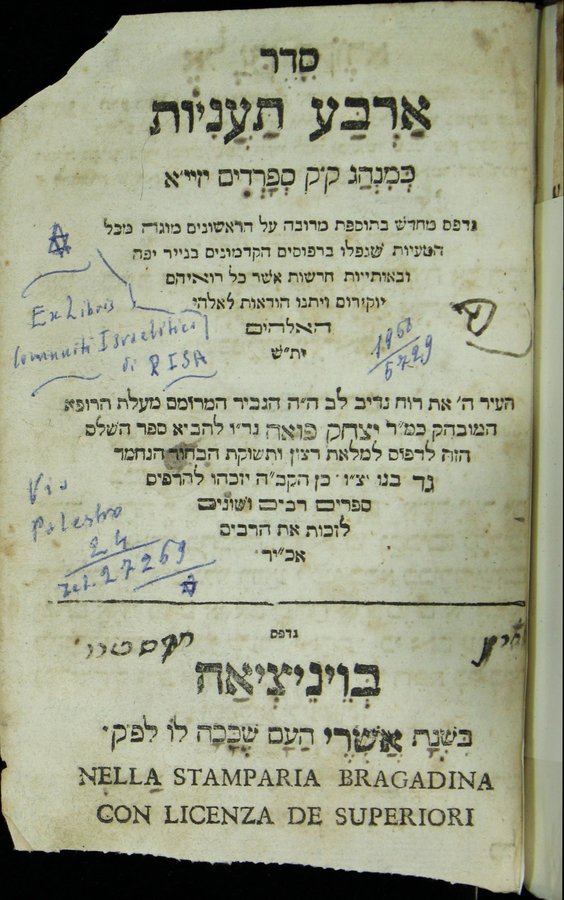 סדר
אַרְבַּע תַּעֲנִיּוֹת
כְּמִנְהַג ק״ק סְפָרַדִּים יזיי״א
נדפס מחדש בתוספת מרובה על הראשונים מוגה מכל
הטעיות שנפלו בדפוסים הקדמונים בנייר יפה
ובאותייות חדשות אשר כל רואיהם
יוקירום ויתנו הודאות לאלהי
האלהים
ית״ש
Ex Libris
Comunità Israelitica
di PISA
1968
5729
העיר ה׳ את רוח נדיב לב ה״ה הגביר המרומם מעלת הרופא
המובהק כמ״ר יצחק פואה נר״ו להביא ספר השלם
הזה לדפוס למלאת רצון ותשוקת הבחור הנחמד
גד בנו יצ״ו כן הקב״ה יזכהו להדפיס
ספרים רבים ושונים
לזכות את הרבים
אכי״ר
Via
Palestro
24
Tel. 27269
נדפס
בְּוֵינֵיצִיאַה
בִּשְׁנַת אַשְׁרֵי הָעָם שֶׁכָּכָה לוֹ לפ״ק
NELLA STAMPARIA BRAGADINA
CON LICENZA DE SUPERIORI